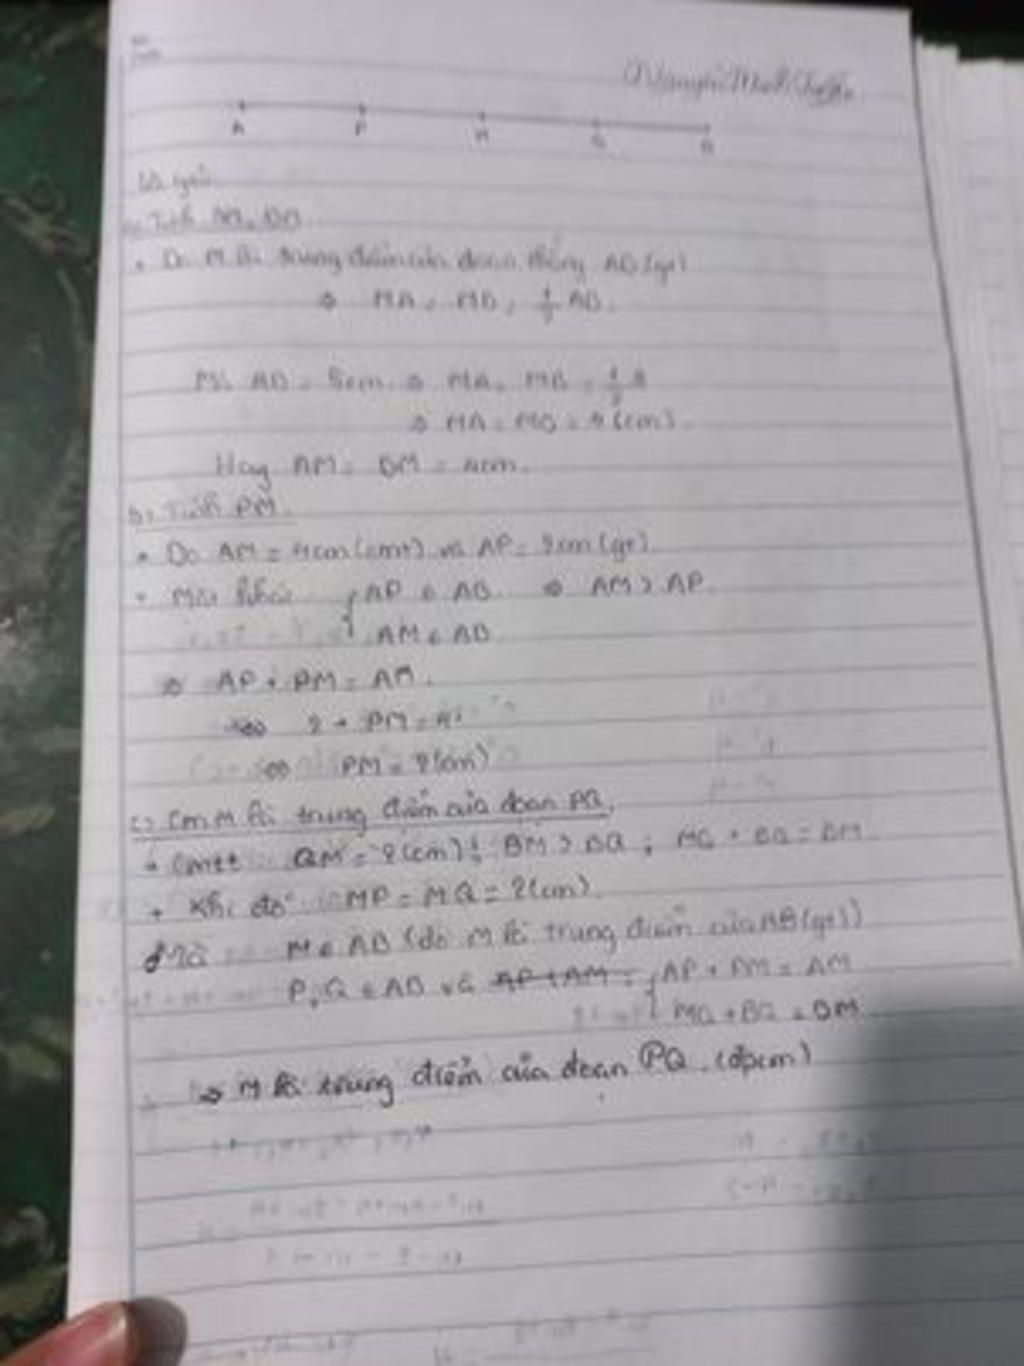 Nguyễn Minh
A P M Q B
Bài giải
a, Tính AM, BM
+ Do M là trung điểm của đoạn thẳng AB (gt)
⇒ MA = MB = 1/2 AB.
Mà AB = 8cm ⇒ MA = MB = 1/2 8
⇒ MA = MB = 4 (cm).
Hay AM = BM = 4cm.
b, Tính PM.
+ Do AM = 4cm (cmt) và AP = 2cm (gt)
+ Mặt khác { AP ∈ AB ⇒ AM > AP.
AM ∈ AB
⇒ AP + PM = AM.
⇔ 2 + PM = 4
⇔ PM = 2 (cm)
c) Cm M là trung điểm của đoạn PQ.
+ Cmtt: QM = 2 (cm) BM > BQ ; MQ + BQ = BM
+ Khi đó MP = MQ = 2 (cm).
Mà M ∈ AB (do M là trung điểm của AB (gt))
P, Q ∈ AB và { AP + PM = AM
MQ + BQ = BM
⇒ M là trung điểm của đoạn PQ. (đpcm)